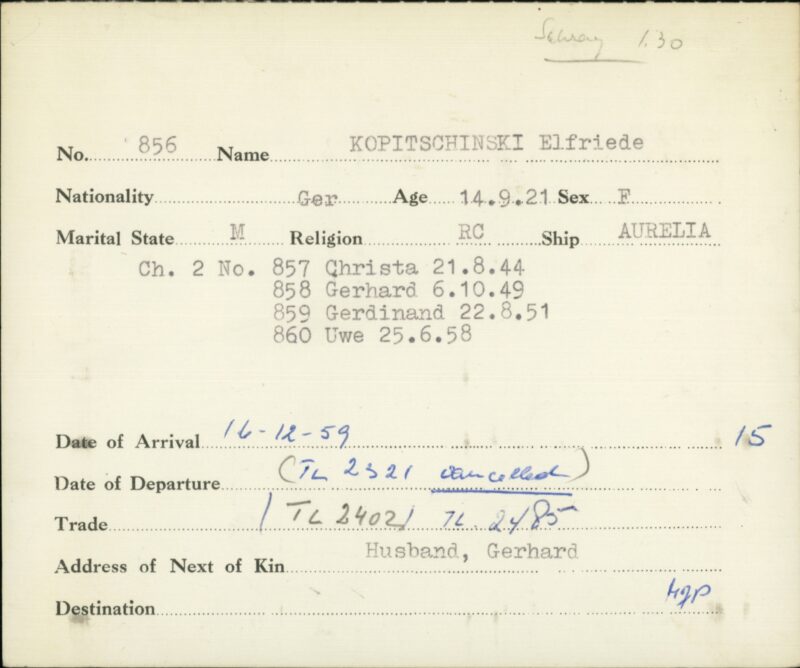 1.30
No. 856 Name KOPITSCHINSKI Elfriede
Nationality Ger Age 14.9.21 Sex F
Marital State M Religion RC Ship AURELIA
Ch. 2 No. 857 Christa 21.8.44
858 Gerhard 6.10.49
859 Gerdinand 22.8.51
860 Uwe 25.6.58
Date of Arrival 16-12-59 15
Date of Departure (TL 2321 cancelled)
Trade (TL 2402) TL. 2485
Address of Next of Kin Husband, Gerhard
Destination